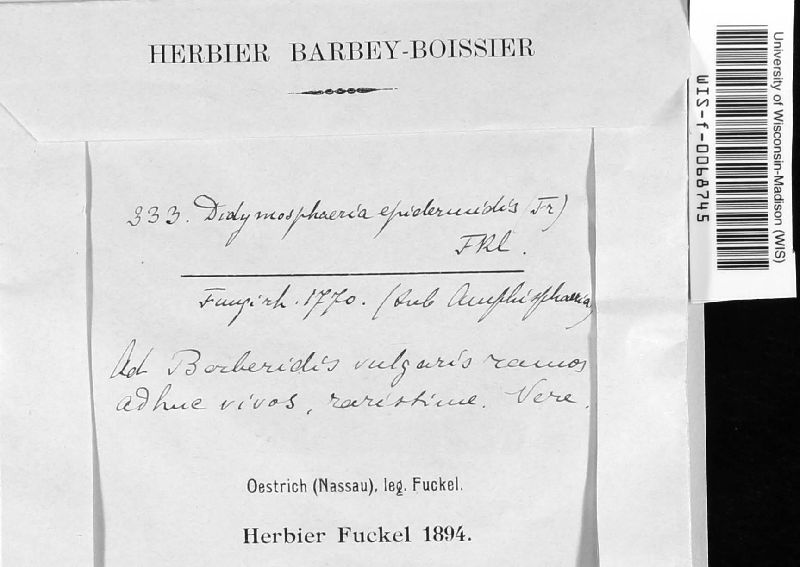 HERBIER BARBEY-BOISSIER
333. Didymosphaeria epidermidis (Fr)
Fkl.
Fungi rh. 1770. (sub Amphisphaeria)
Ad Berberidis vulgaris ramos
adhuc vivos, rarissime. Vere.
Oestrich (Nassau), leg. Fuckel.
Herbier Fuckel 1894.
University of Wisconsin-Madison (WIS)
WIS-f-0068745